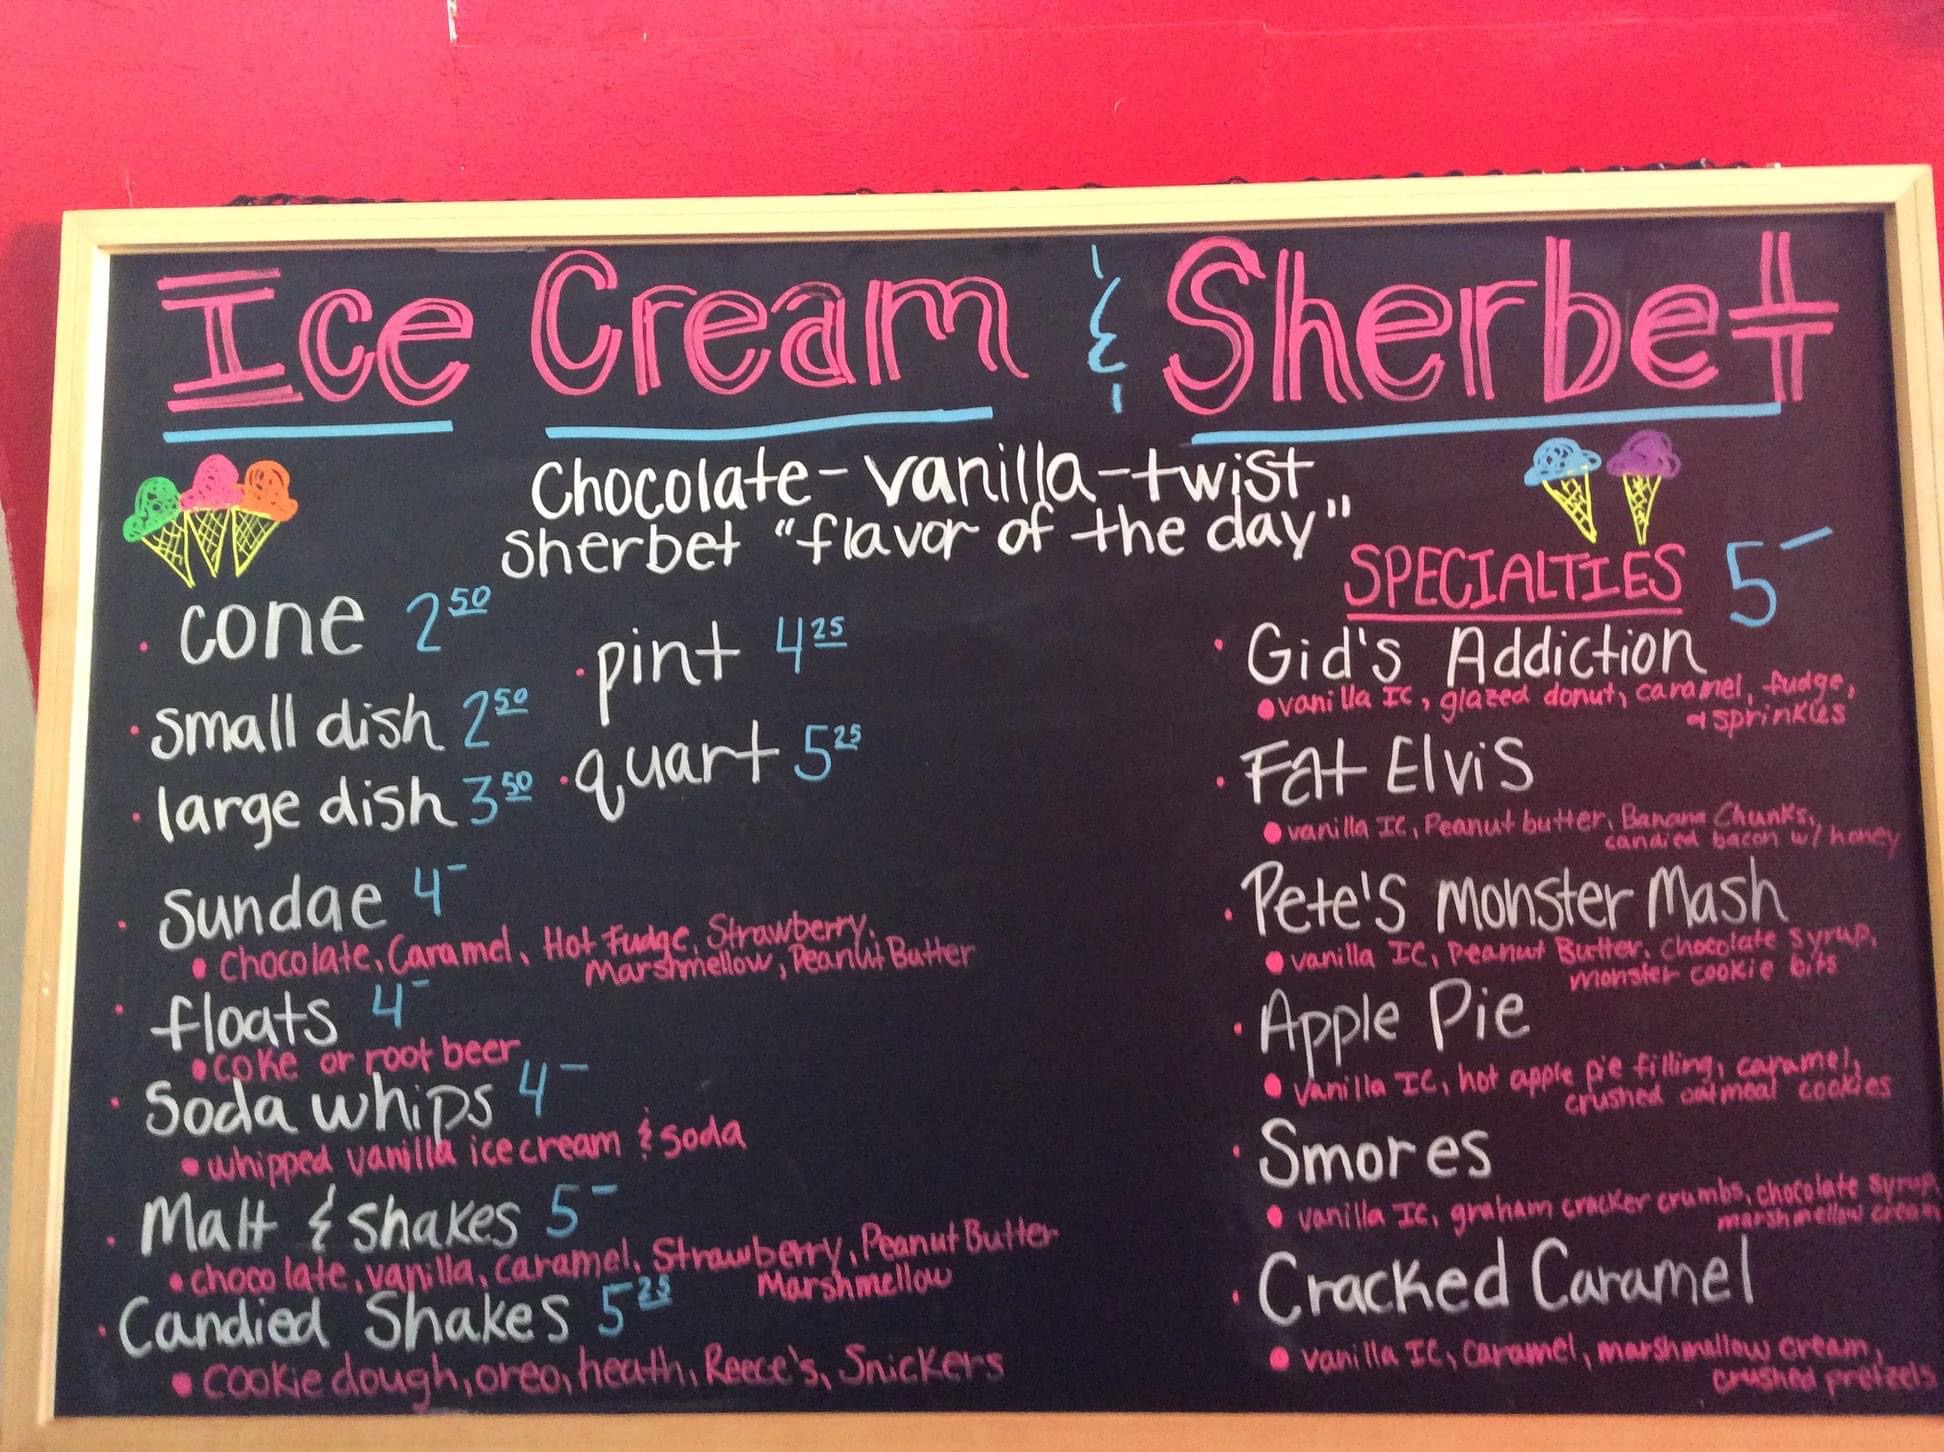 Ice Cream & Sherbet
Chocolate-vanilla-twist
sherbet "flavor of the day"
• cone 2 50
• small dish 2 50
• large dish 3 50
• pint 4 25
• quart 5 25
• Sundae 4-
• Chocolate, Caramel, Hot Fudge, Strawberry,
Marshmellow, Peanut Butter
• floats 4-
• coke or root beer
• Soda whips 4-
• whipped vanilla ice cream & soda
• Malt & shakes 5-
• chocolate, vanilla, caramel, Strawberry, Peanut Butter
Marshmellow
• Candied Shakes 5 25
• cookie dough, oreo, heath, Reece's, Snickers
SPECIALTIES 5-
• Gid's Addiction
• vanilla IC, glazed donut, caramel, fudge,
& sprinkles
• Fat Elvis
• vanilla IC, Peanut butter, Banana Chunks,
candied bacon w/ honey
• Pete's Monster Mash
• vanilla IC, Peanut Butter, Chocolate syrup,
monster cookie bits
• Apple Pie
• vanilla IC, hot apple pie filling, caramel,
crushed oatmeal cookies
• Smores
• vanilla IC, graham cracker crumbs, chocolate syrup,
marshmellow cream
• Cracked Caramel
• vanilla IC, caramel, marshmallow cream,
crushed pretzels